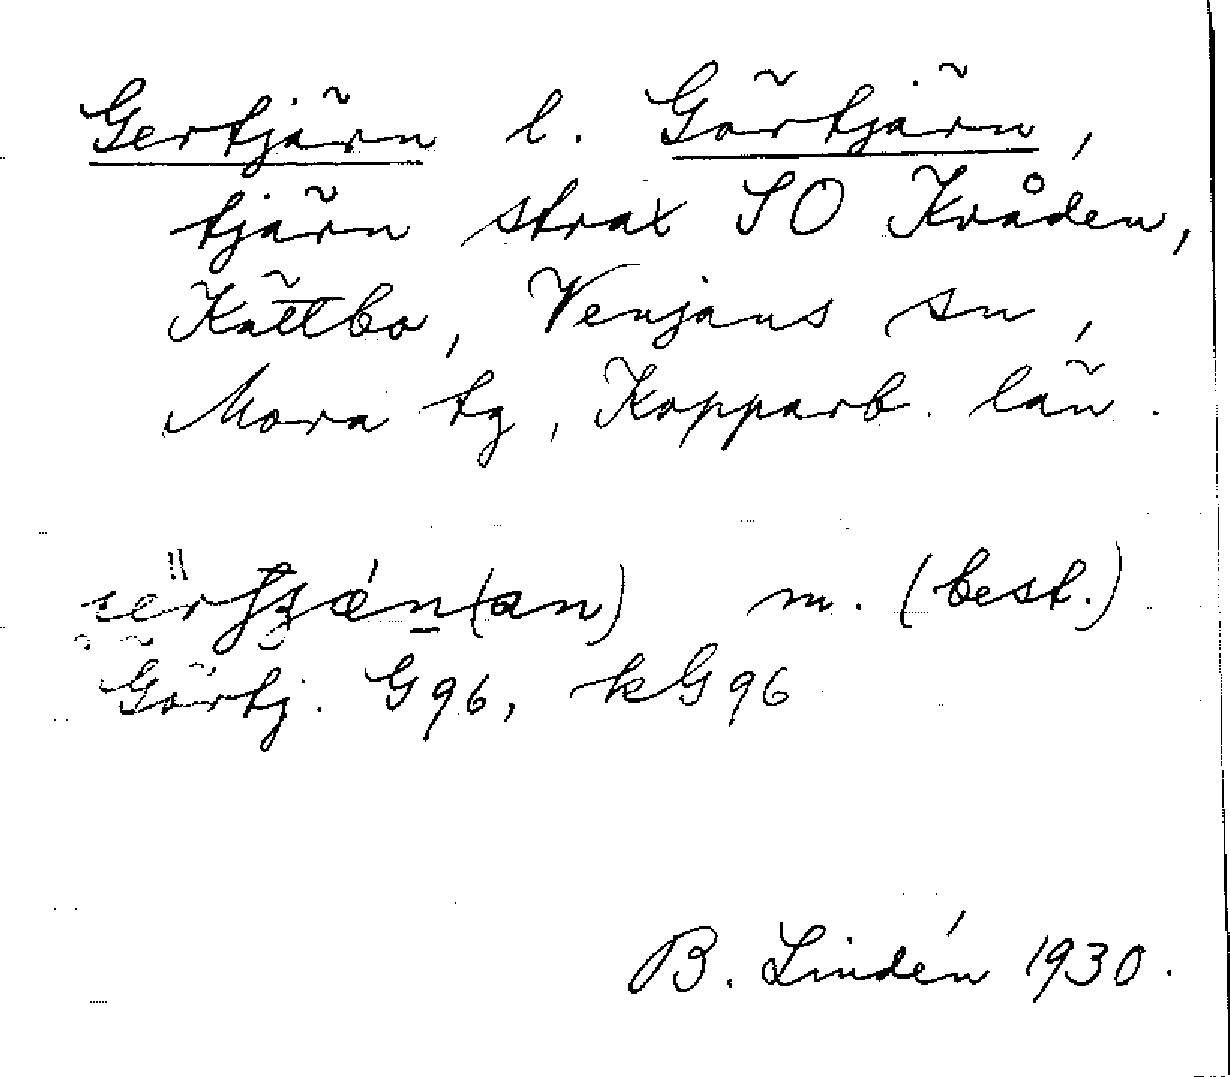 Gertjärn l. Görtjärn,
tjärn strax SO Kråden,
Kättbo, Venjans sn,
Mora tg, Kopparb. län.
m. (best.)
Görtj. G96, kG96
B. Lindén 1930.